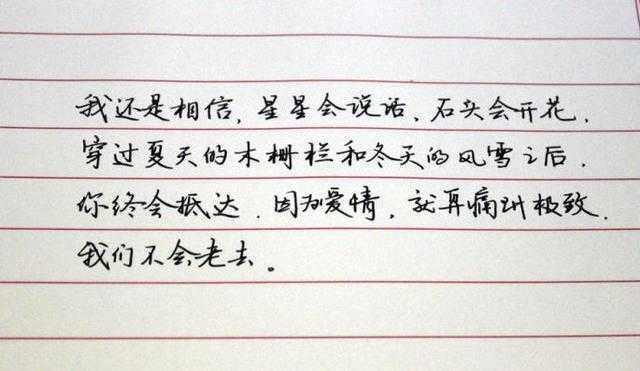 我还是相信,星星会说话、石头会开花,
穿过夏天的木栅栏和冬天的风雪之后,
你终会抵达.因为爱情,就再痛到极致.
我们不会老去。